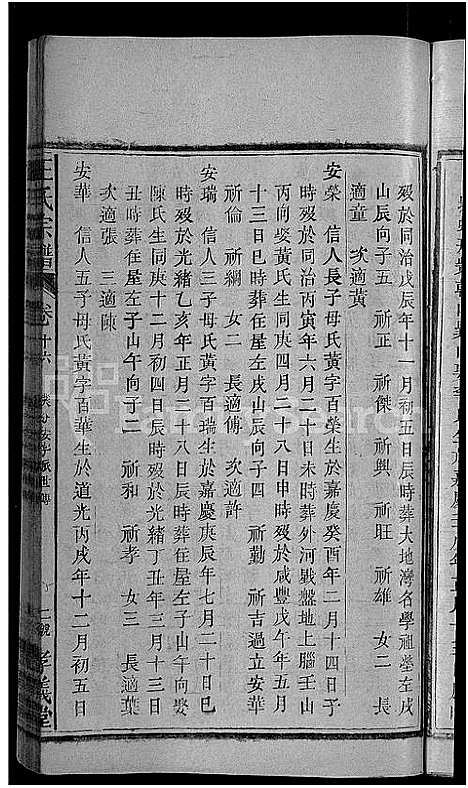 歿於同治戊辰年十一月初五日辰時葬大地灣名學祖塋左戌
山辰向子五 祈正 祈傑 祈興 祈旺 祈雄 女二 長
適童 次適黃
安榮 信人長子母氏黃字百榮生於嘉慶癸酉年二月十四日子
時歿於同治丙寅年六月二十日未時葬外河戥盤地上腦壬山
丙向娶黃氏生同庚四月二十八日申時歿於咸豐戊午年五月
十三日巳時葬在屋左戌山辰向子四 祈勤 祈吉過立安華
祈倫 祈綱 女二 長適傅 次適許
安瑞 信人三子母氏黃字百瑞生於嘉慶庚辰年七月初一日亥
時歿於光緒乙亥年正月三十八日辰時葬在屋左子山午向娶
陳氏生同庚十二月初四日辰時歿於光緒丁丑年三月十三日
丑時葬在屋左子山午向子二 祈和 祈孝 女三 長適葉
次適張 三適陳
安華 信人五子母氏黃字百華生於道光丙戌年十二月初五日
王氏宗譜 卷十六
孝義堂